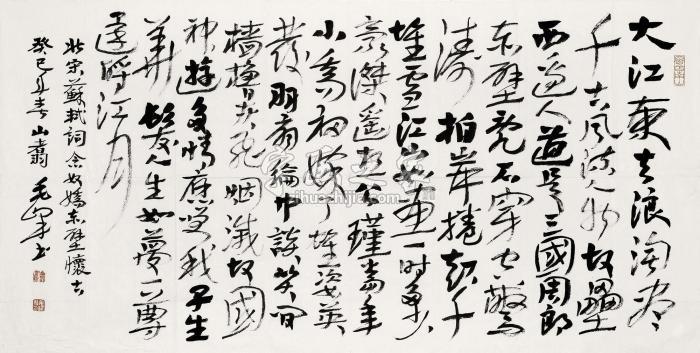 大江東去浪淘盡
千古風流人物故壘
西邊人道是三國周郎
赤壁亂石穿空驚
濤拍岸捲起千
堆雪江山如畫一時多少
豪傑遙想公瑾當年
小喬初嫁了雄姿英
發羽扇綸巾談笑間
檣櫓灰飛烟滅故國
神遊多情應笑我早生
華髮人生如夢一尊
還酹江月
北宋蘇軾詞念奴嬌赤壁懷古
癸巳年春山翥